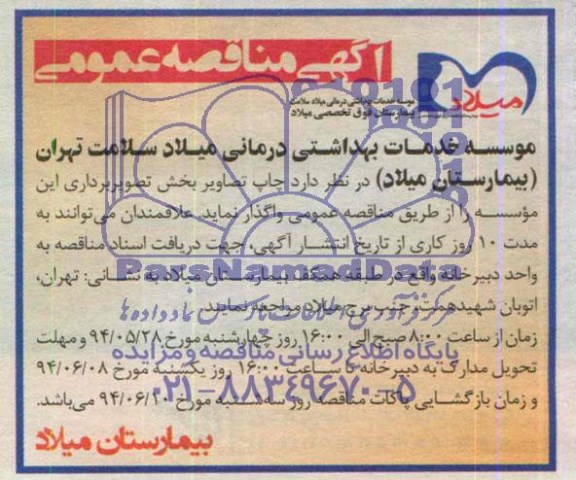 آگهی مناقصه عمومی
میلاد
موسسه خدمات بهداشتی درمانی میلاد سلامت
بیمارستان فوق تخصصی میلاد
موسسه خدمات بهداشتی درمانی میلاد سلامت تهران
(بیمارستان میلاد) در نظر دارد چاپ تصاویر بخش تصویربرداری این
مؤسسه را از طریق مناقصه عمومی واگذار نماید. علاقمندان می‌توانند به
مدت ۱۰ روز کاری از تاریخ انتشار آگهی، جهت دریافت اسناد مناقصه به
واحد دبیرخانه واقع در طبقه همکف بیمارستان میلاد به نشانی: تهران،
اتوبان شهید همت، جنب برج میلاد مراجعه نمایند.
زمان از ساعت ۸:۰۰ صبح الی ۱۶:۰۰ روز چهارشنبه مورخ ۹۴/۰۵/۲۸ و مهلت
تحویل مدارک به دبیرخانه تا ساعت ۱۶:۰۰ روز یکشنبه مورخ ۹۴/۰۶/۰۸
و زمان بازگشایی پاکات مناقصه روز سه‌شنبه مورخ ۹۴/۰۶/۱۰ می‌باشد.
بیمارستان میلاد
ParsNamadData
پایگاه اطلاع رسانی مناقصه و مزایده
۰۲۱-۸۸۳۴۹۶۷۰-۵